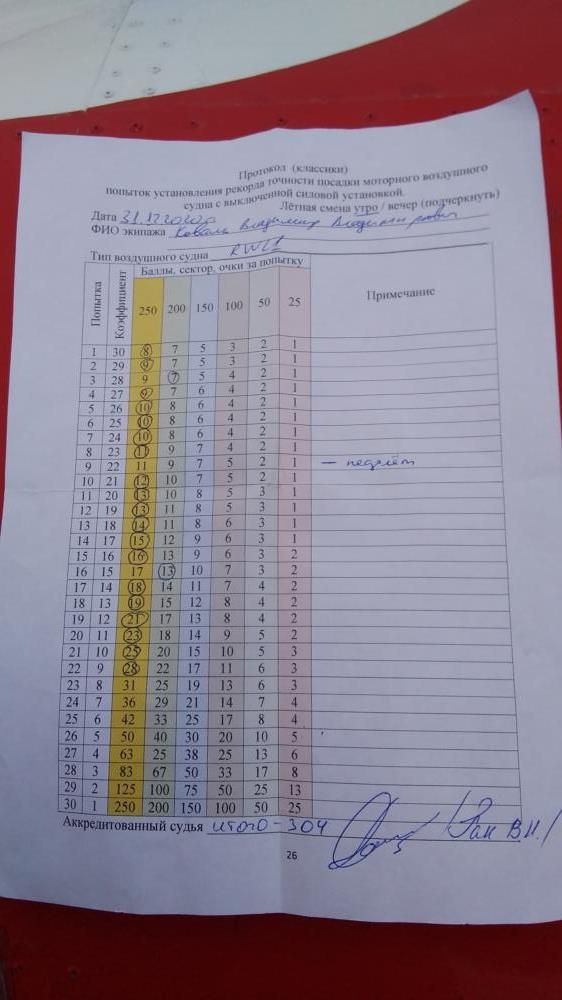 Протокол (классики)
попыток установления рекорда точности посадки моторного воздушного
судна с выключенной силовой установкой.
Дата 31.12.2020г Лётная смена утро / вечер (подчеркнуть)
ФИО экипажа Коваль Владимир Владимирович
Тип воздушного судна
Попытка Коэффициент Баллы, сектор, очки за попытку Примечание
250 200 150 100 50 25
1 30 8 7 5 3 2 1
2 29 9 7 5 3 2 1
3 28 9 7 5 4 2 1
4 27 9 7 6 4 2 1
5 26 10 8 6 4 2 1
6 25 10 8 6 4 2 1
7 24 10 8 6 4 2 1
8 23 11 9 7 4 2 1
9 22 11 9 7 5 2 1 – недолёт
10 21 12 10 7 5 2 1
11 20 13 10 8 5 3 1
12 19 13 11 8 5 3 1
13 18 14 11 8 6 3 1
14 17 15 12 9 6 3 1
15 16 16 13 9 6 3 2
16 15 17 13 10 7 3 2
17 14 18 14 11 7 4 2
18 13 19 15 12 8 4 2
19 12 21 17 13 8 4 2
20 11 23 18 14 9 5 2
21 10 25 20 15 10 5 3
22 9 28 22 17 11 6 3
23 8 31 25 19 13 6 3
24 7 36 29 21 14 7 4
25 6 42 33 25 17 8 4
26 5 50 40 30 20 10 5
27 4 63 25 38 25 13 6
28 3 83 67 50 33 17 8
29 2 125 100 75 50 25 13
30 1 250 200 150 100 50 25
Аккредитованный судья итого - 304
26